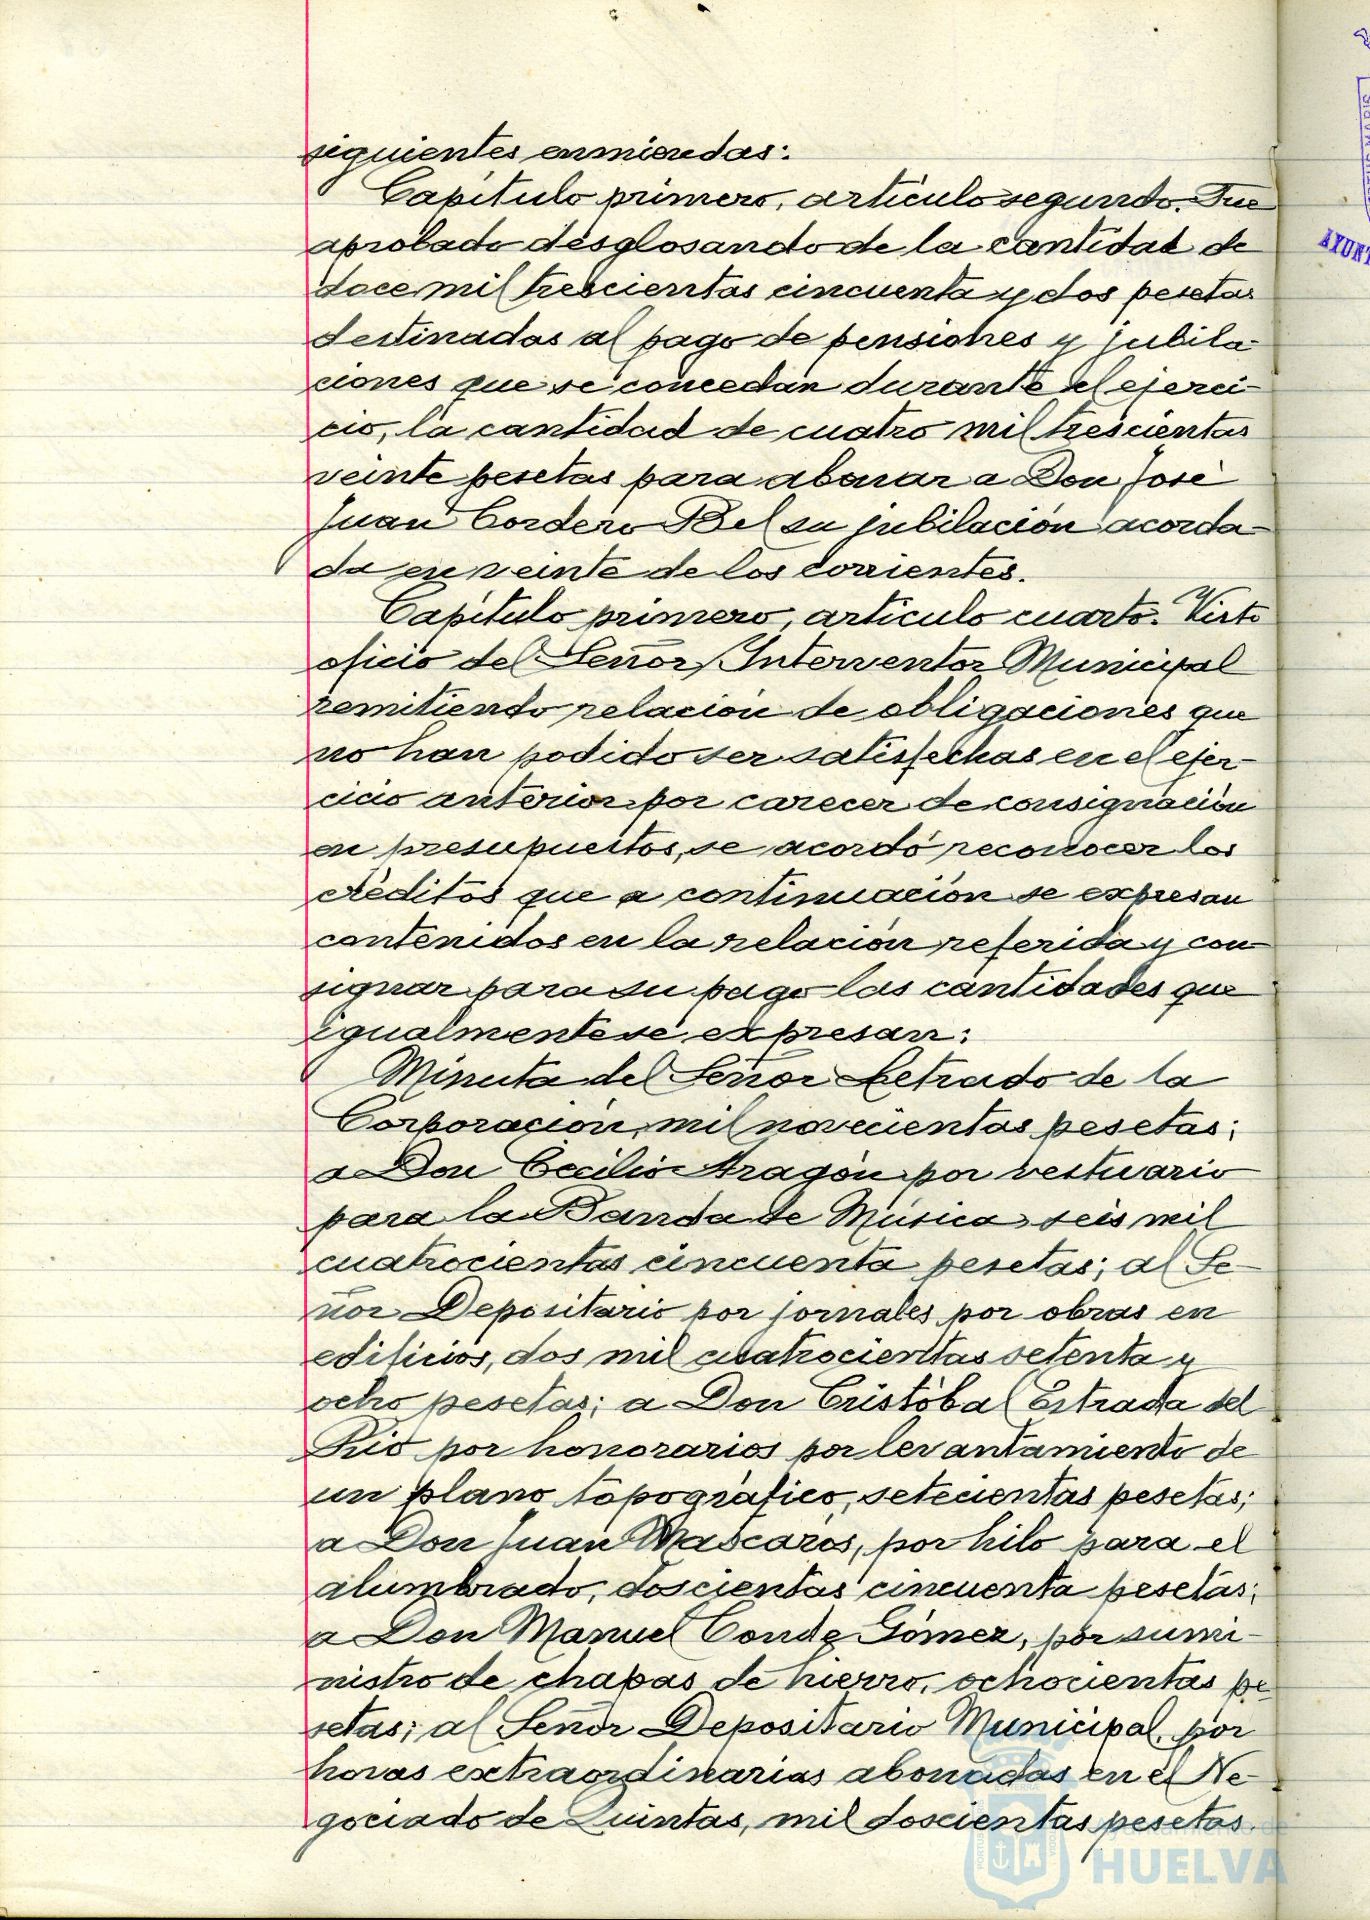 siguientes enmiendas:
Capítulo primero, artículo segundo. Fue
aprobado desglosando de la cantidad de
doce mil trescientas cincuenta y dos pesetas
destinadas al pago de pensiones y jubila-
ciones que se concedan durante el ejerci-
cio, la cantidad de cuatro mil trescientas
veinte pesetas para abonar a Don José
Juan Cordero Bel su jubilación acorda-
da en veinte de los corrientes.
Capítulo primero, artículo cuarto. Visto
oficio del Señor Interventor Municipal
remitiendo relación de obligaciones que
no han podido ser satisfechas en el ejer-
cicio anterior por carecer de consignación
en presupuestos, se acordó reconocer los
créditos que a continuación se expresan
contenidos en la relación referida y con-
signar para su pago las cantidades que
igualmente se expresan:
Minuta del Señor Letrado de la
Corporación, mil novecientas pesetas;
a Don Cecilio Aragón por vestuario
para la Banda de Música seis mil
cuatrocientas cincuenta pesetas; al Se-
ñor Depositario por jornales por obras en
edificios, dos mil cuatrocientas setenta y
ocho pesetas; a Don Cristóbal Estrada del
Rio por honorarios por levantamiento de
un plano topográfico, setecientas pesetas;
a Don Juan Mascarós, por hilo para el
alumbrado, doscientas cincuenta pesetas;
a Don Manuel Conde Gómez, por sumi-
nistro de chapas de hierro, ochocientas pe-
setas; al Señor Depositario Municipal, por
horas extraordinarias abonadas en el Ne-
gociado de Quintas, mil doscientas pesetas.
Ayuntamiento de
HUELVA
AYUNT